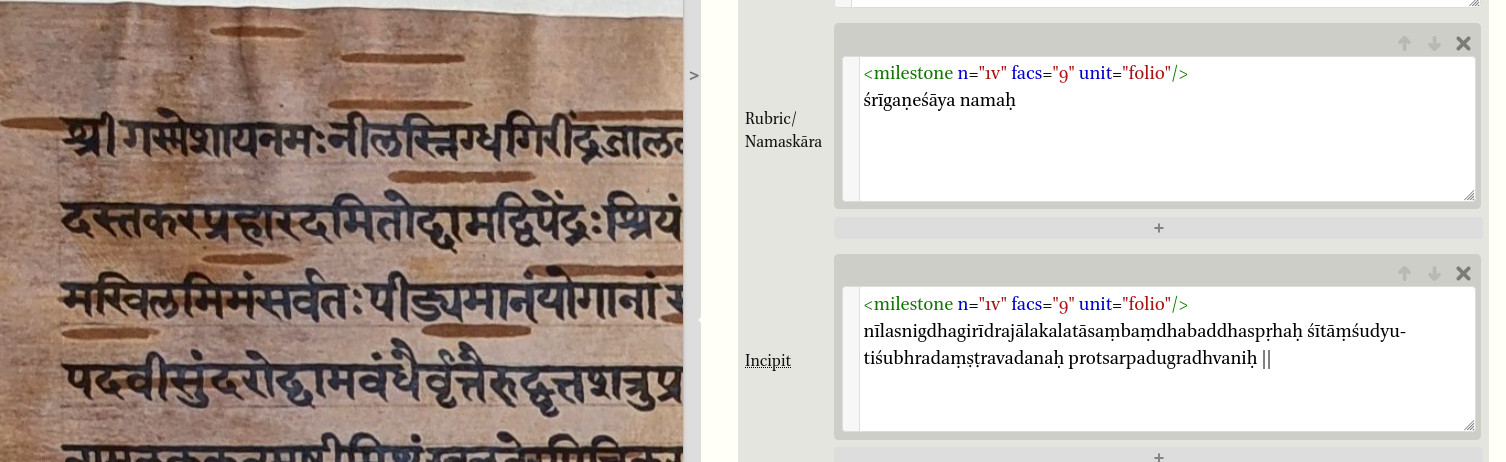 श्रीगणेशायनमःनीलस्निग्धगिरींद्रजाल
दस्तकरप्रहारदमितोद्दामद्विपेंद्रःश्रियं
मखिलमिमंसर्वतःपीड्यमानंयोगानां
पदवीसुंदरोद्दामवंधैर्वृत्तैरुद्वृत्तशत्रुप्र
>
Rubric/
Namaskāra
<milestone n="1v" facs="9" unit="folio"/>
śrīgaṇeśāya namaḥ
+
Incipit
<milestone n="1v" facs="9" unit="folio"/>
nīlasnigdhagirīdrajālakalatāsaṃbaṃdhabaddhaspṛhaḥ śītāṃśudyu-
tiśubhradaṃṣṭravadanaḥ protsarpadugradhvaniḥ ||
+